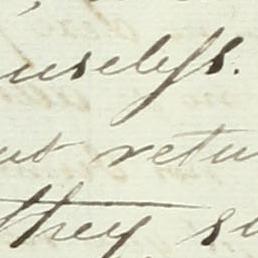 useless.
ut retu
they s